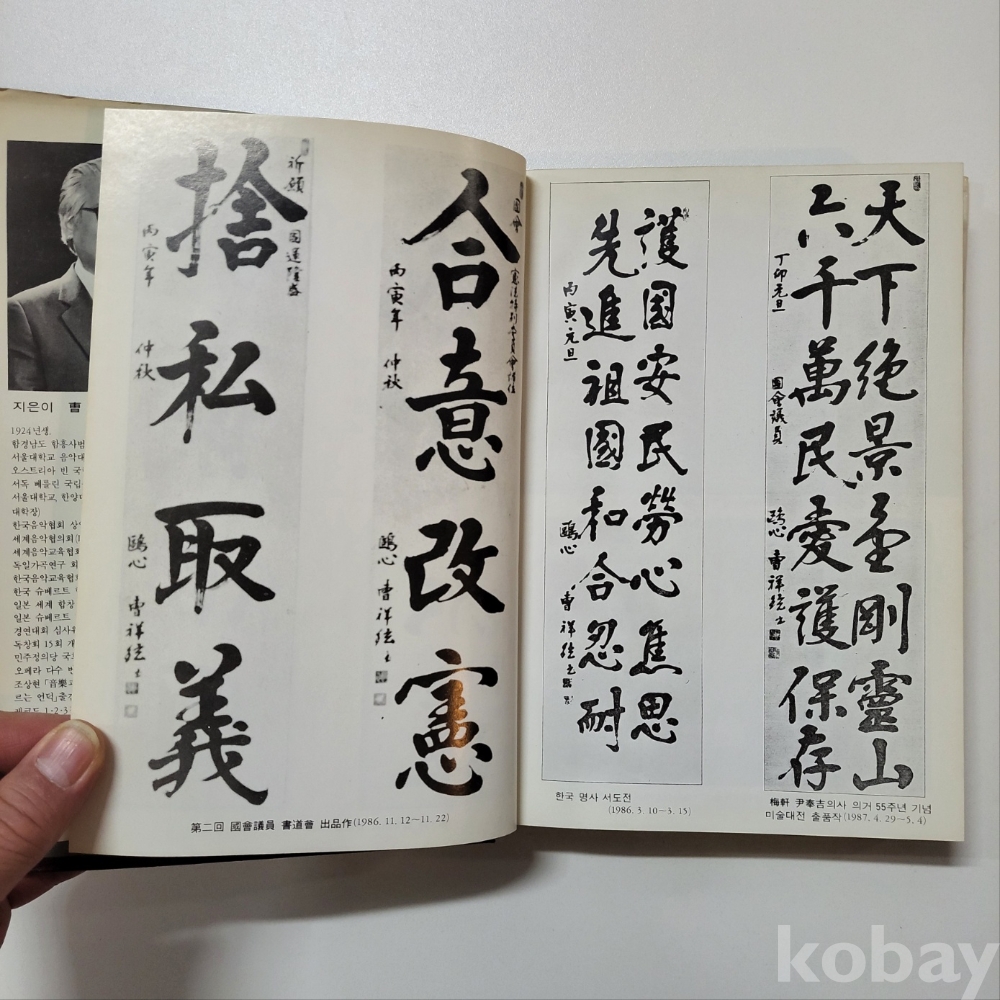 지은이 曺
1924년생.
함경남도 함흥사범
서울대학교 음악대
오스트리아 빈 국
서독 베를린 국립
서울대학교, 한양대
대학장)
한국음악협회 상
세계음악협의회
세계음악교육협회
독일가곡연구 회
한국음악교육협
한국 슈베르트
일본 세계 합창
일본 슈베르트
경연대회 심사
독창회 15회 개
민주정의당 국
오페라 다수
조상현「音樂
르는 언덕」출
레코드 1·2·3
祈願 國運隆盛
捨私取義
丙寅年 仲秋
鷗心 曺祥鉉
國會 憲法特別委員會
合意改憲
丙寅年 仲秋
鷗心 曺祥鉉
第二回 國會議員 書道會 出品作(1986. 11. 12~11. 22)
護國安民勞心焦思
先進祖國和合忍耐
丙寅元旦
鷗心 曺祥鉉
한국 명사 서도전
(1986. 3. 10~3. 15)
天下絶景金剛靈山
六千萬民愛護保存
丁卯元旦 國會議員 鷗心 曺祥鉉
梅軒 尹奉吉의사 의거 55주년 기념
미술대전 출품작(1987. 4. 29~5. 4)
kobay